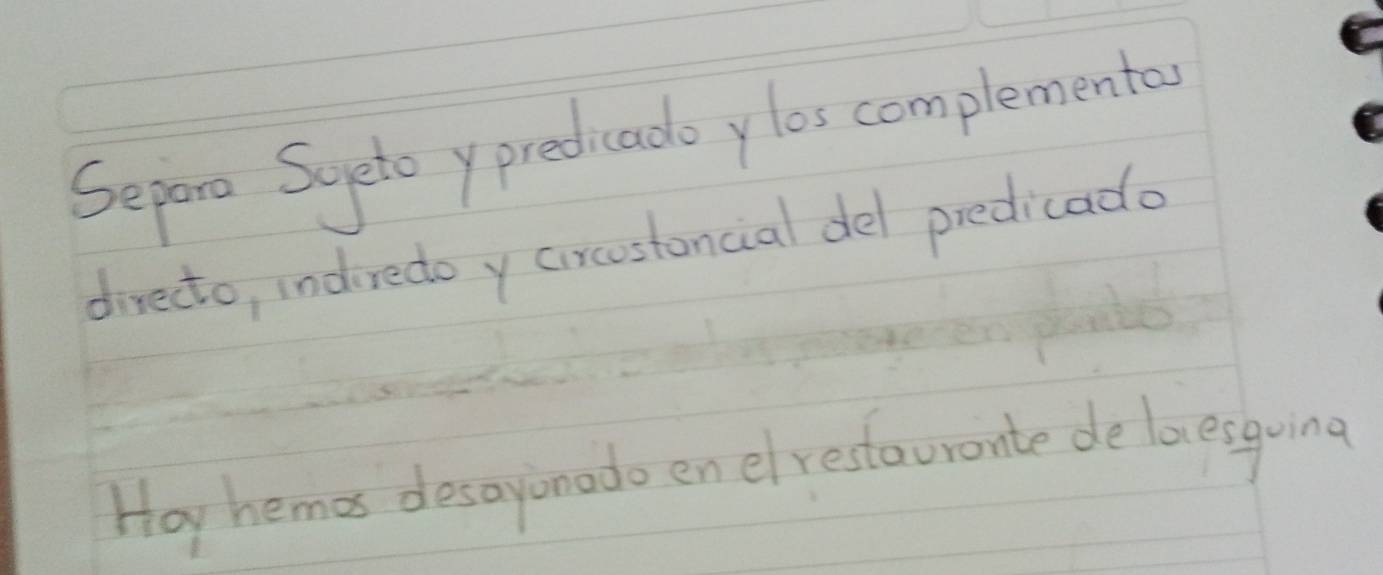 Separa Sujeto y predicado y los complementos
directo, indirecto y circustancial del predicado
Hoy hemos desayunado en el restaurante de la esquina